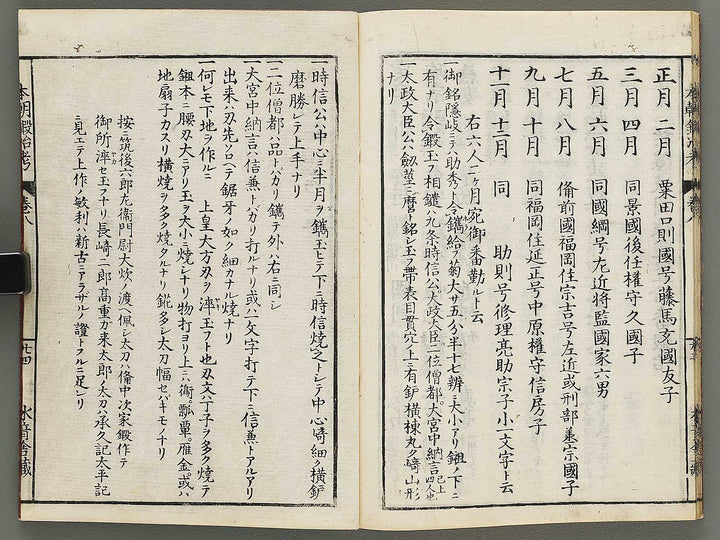 正月 二月 粟田口則國号藤馬允國友子
三月 四月 同景國後任權守久國子
五月 六月 同國綱号左近将監國家六男
七月 八月 備前國福岡住宗吉号左近或刑部蒸宗國子
九月 十月 同福岡住延正号中原權守信房子
十一月 十二月 同 助則号修理亮助宗子小一文字ト云
右六人二ヶ月宛御番勤ルト云
一御銘隠岐ニテ助秀トモ鐫給フ菊大サ五分半十七辨ニ大小アリ鎺ノ下ニ
有ナリ令鍛玉フ相鎚ハ九条時信公太政大臣二位僧都大宮中納言已上四人也
一太政大臣公ハ釼莖ニ磨ト銘シ玉フ帶表目貫穴ノ上ニ有鈩横棟丸ク﨑山形
ナリ
一時信公ハ中心ニ半月ヲ鐫玉ヒテ下ニ時信燒之トシテ中心﨑細ク横鈩
磨勝レテ上手ナリ
一二位僧都ハ品トバカリ鐫テ外ハ右ニ同シ
一大宮中納言ハ信兼トバカリ打ルナリ或ハ一文字打テ下ニ信兼トアルアリ
出来ハ刃先ソロヘテ鋸牙ノ如ク細カナル燒ナリ
一何レモ下地ヲ作ルニ 上皇大方刃ヲ淬玉フト也刃文ハ丁子ヲ多ク燒テ
鎺本ニ腰刃大ニアリ玉ヲ大小ニ燒シナリ物打ヨリ上ニハ衛瓢單雁金或ハ
地扇子カスリ横燒ヲ多ク燒タルナリ錵多シ太刀幅セバキモノナリ
按筑後六郎左衛門尉大炊ノ渡ヘ佩シ太刀ハ備中次家鍛作テ
御所淬セ玉フナリ長崎二郎高重ガ来太郎ノ太刀ハ承久記太平記
ニ見エテ上作ノ敏利ハ新古ニアラザル證トフルニ足レリ
本朝鍛冶考 巻八